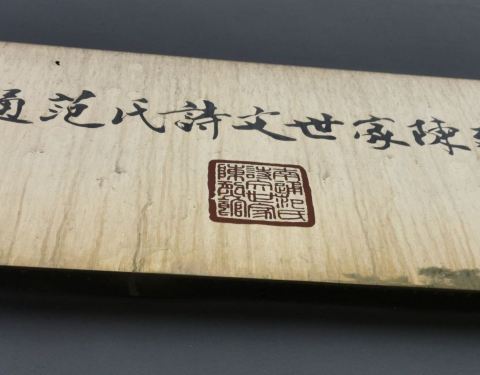 通范氏詩文世家陳
南通范氏
詩文世家
陳列館